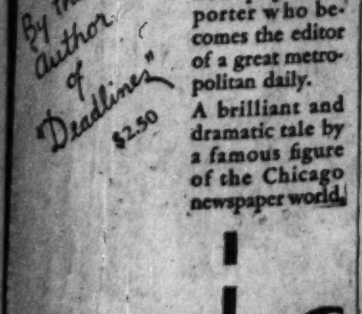 By the
author
of
"Deadlines"
$2.50
porter who be-
comes the editor
of a great metro-
politan daily.
A brilliant and
dramatic tale by
a famous figure
of the Chicago
newspaper world.